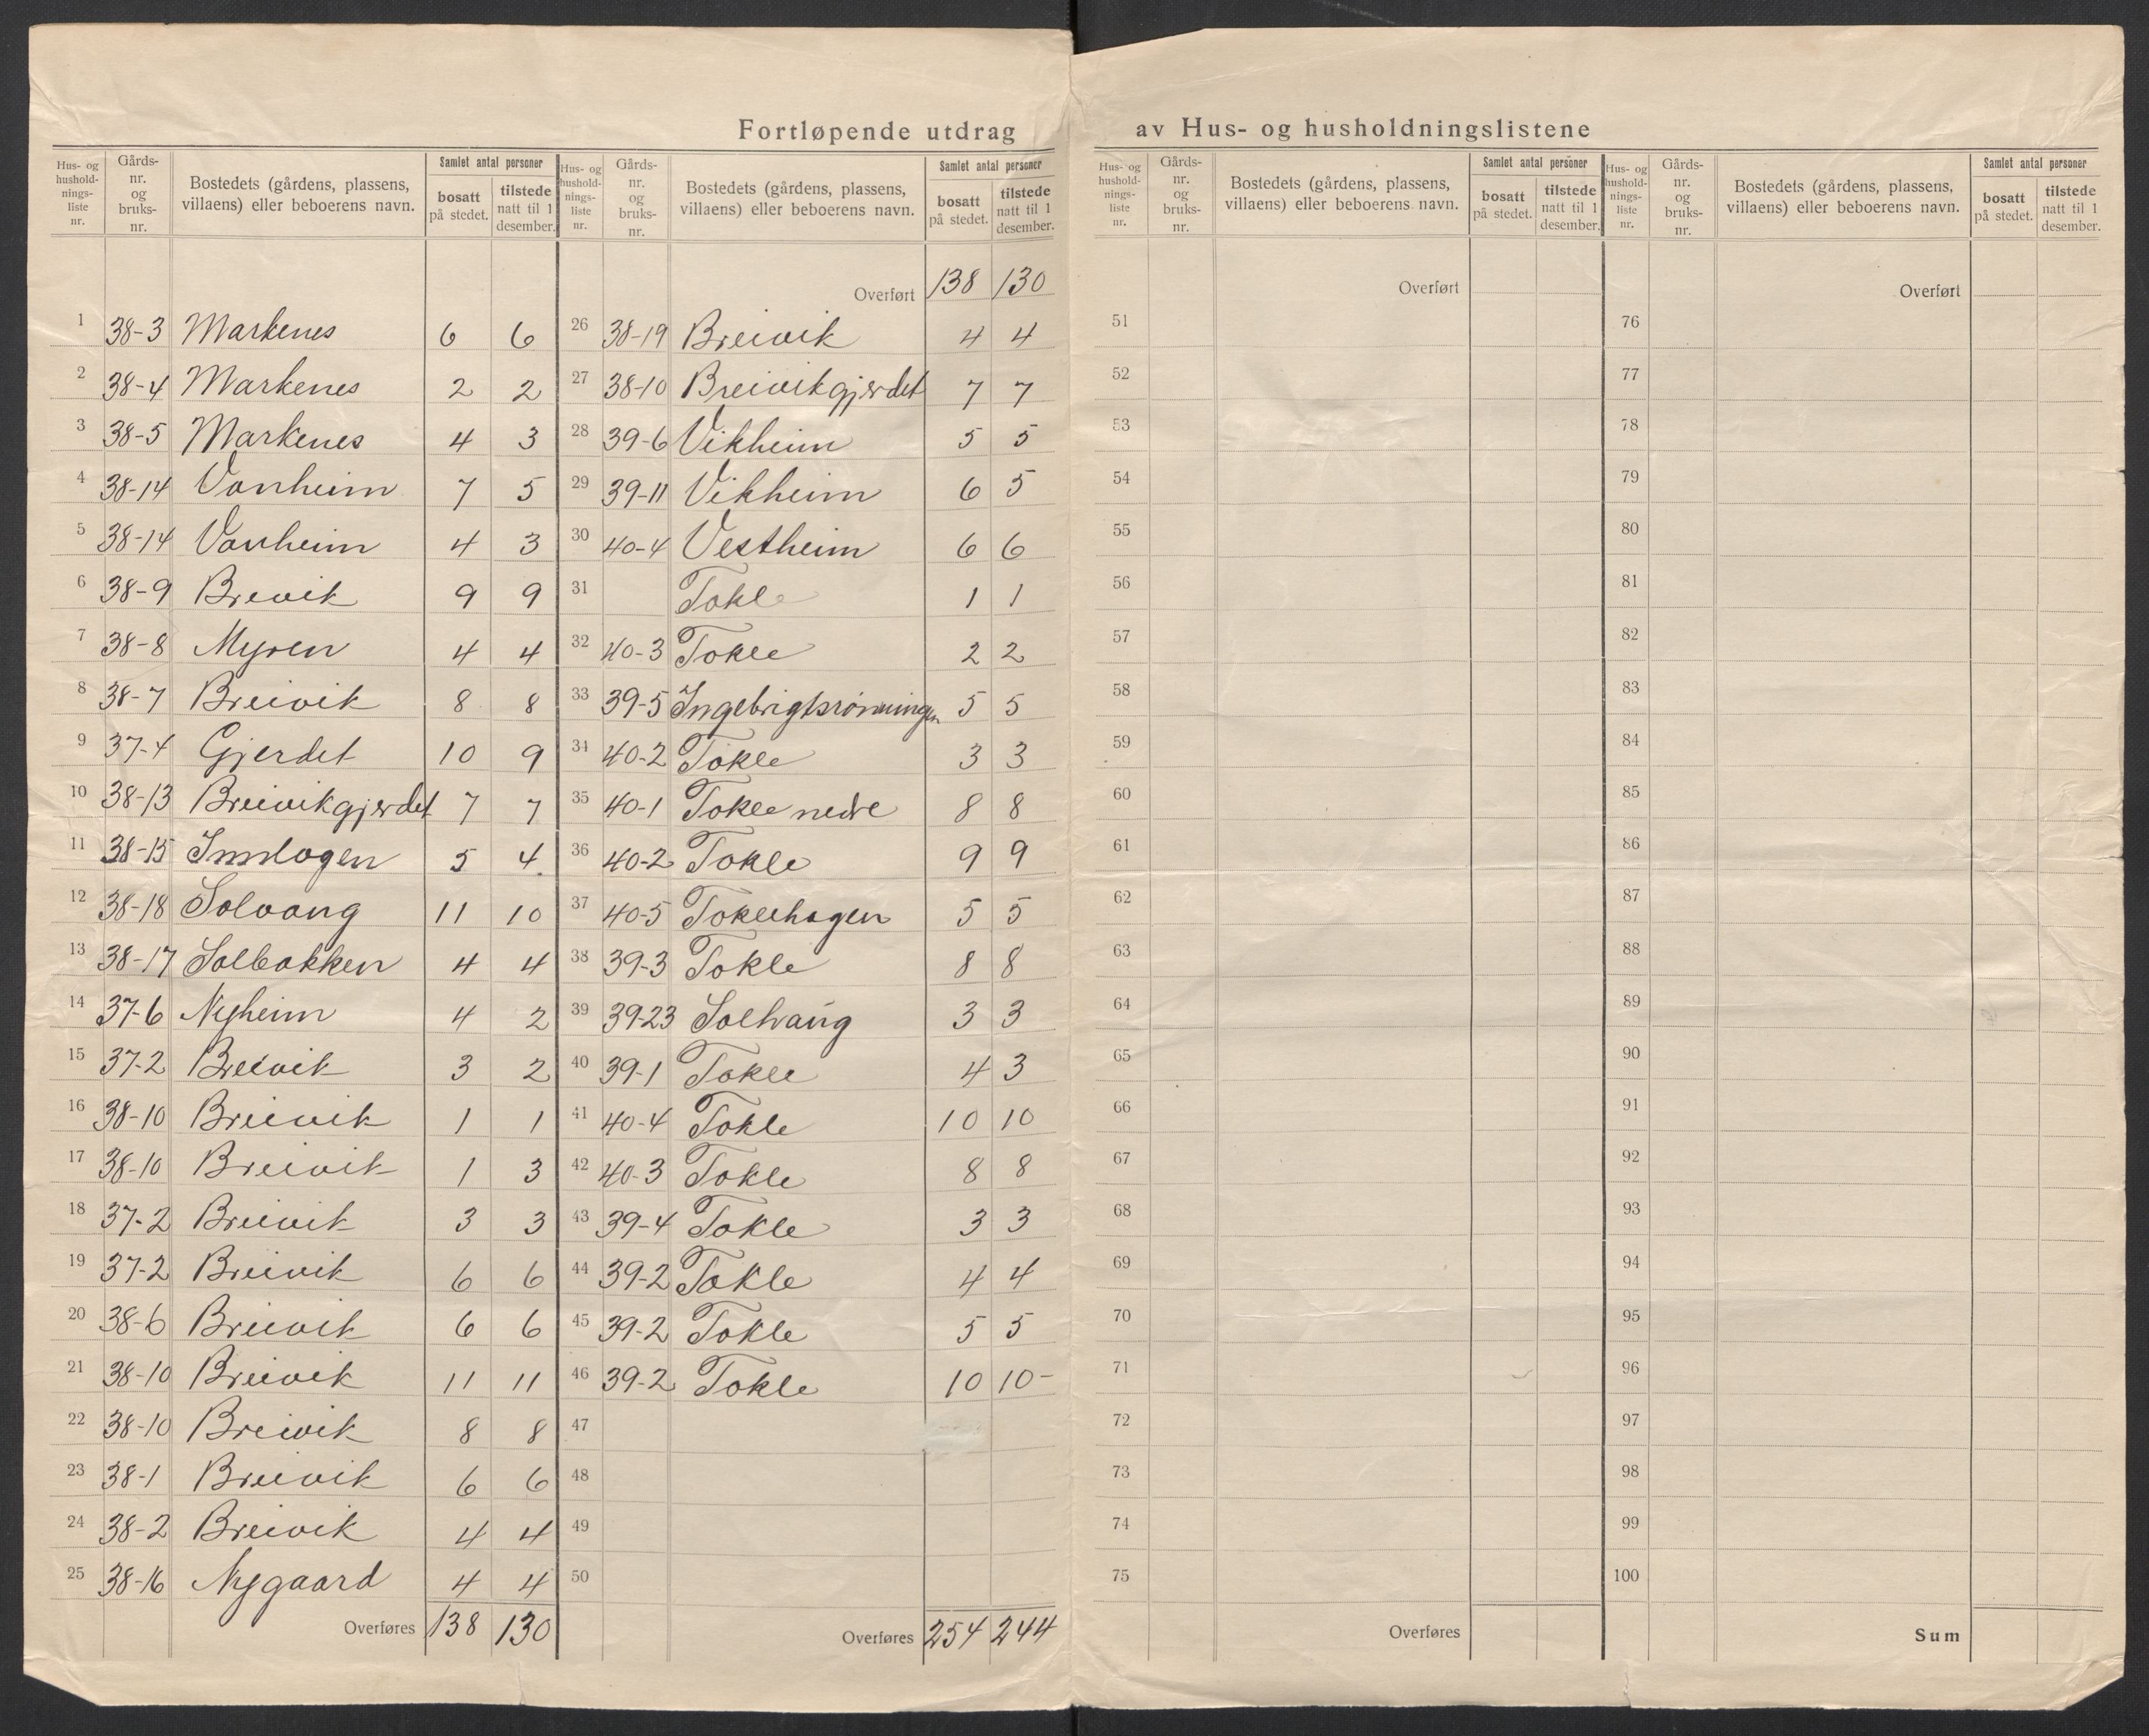 Fortløpende utdrag av Hus- og husholdningslistene
Hus- og hushold-nings-liste nr. Gårds-nr. og bruks-nr. Bostedets (gårdens, plassens, villaens) eller beboerens navn. Samlet antal personer bosatt på stedet. tilstede natt til 1 desember.
1 38-3 Markenes 6 6
2 38-4 Markenes 2 2
3 38-5 Markenes 4 3
4 38-14 Vonheim 7 5
5 38-14 Vonheim 4 3
6 38-9 Brevik 9 9
7 38-8 Myren 4 4
8 38-7 Breivik 8 8
9 37-4 Gjerdet 10 9
10 38-13 Breivikgjerdet 7 7
11 38-15 Innlogen 5 4
12 38-18 Solvang 11 10
13 38-17 Solbakken 4 4
14 37-6 Nyheim 4 2
15 37-2 Breivik 3 2
16 38-10 Breivik 1 1
17 38-10 Breivik 1 3
18 37-2 Breivik 3 3
19 37-2 Breivik 6 6
20 38-6 Breivik 6 6
21 38-10 Breivik 11 11
22 38-10 Breivik 8 8
23 38-1 Breivik 6 6
24 38-2 Breivik 4 4
25 38-16 Nygaard 4 4
Overføres 138 130
Hus- og hushold-nings-liste nr. Gårds-nr. og bruks-nr. Bostedets (gårdens, plassens, villaens) eller beboerens navn. Samlet antal personer bosatt på stedet. tilstede natt til 1 desember.
Overført 138 130
26 38-19 Breivik 4 4
27 38-10 Breivikgjerdet 7 7
28 39-6 Vikheim 5 5
29 39-11 Vikheim 6 5
30 40-4 Vestheim 6 6
31 Tokle 1 1
32 40-3 Tokle 2 2
33 39-5 Ingebrigtsrønningen 5 5
34 40-2 Tokle 3 3
35 40-1 Tokle nedre 8 8
36 40-2 Tokle 9 9
37 40-5 Toklehagen 5 5
38 39-3 Tokle 8 8
39 39-23 Solhaug 3 3
40 39-1 Tokle 4 3
41 40-4 Tokle 10 10
42 40-3 Tokle 8 8
43 39-4 Tokle 3 3
44 39-2 Tokle 4 4
45 39-2 Tokle 5 5
46 39-2 Tokle 10 10-
47
48
49
50
Overføres 254 244
Hus- og hushold-nings-liste nr. Gårds-nr. og bruks-nr. Bostedets (gårdens, plassens, villaens) eller beboerens navn. Samlet antal personer bosatt på stedet. tilstede natt til 1 desember.
Overført
51
52
53
54
55
56
57
58
59
60
61
62
63
64
65
66
67
68
69
70
71
72
73
74
75
Overføres
Hus- og hushold-nings-liste nr. Gårds-nr. og bruks-nr. Bostedets (gårdens, plassens, villaens) eller beboerens navn. Samlet antal personer bosatt på stedet. tilstede natt til 1 desember.
Overført
76
77
78
79
80
81
82
83
84
85
86
87
88
89
90
91
92
93
94
95
96
97
98
99
100
Sum